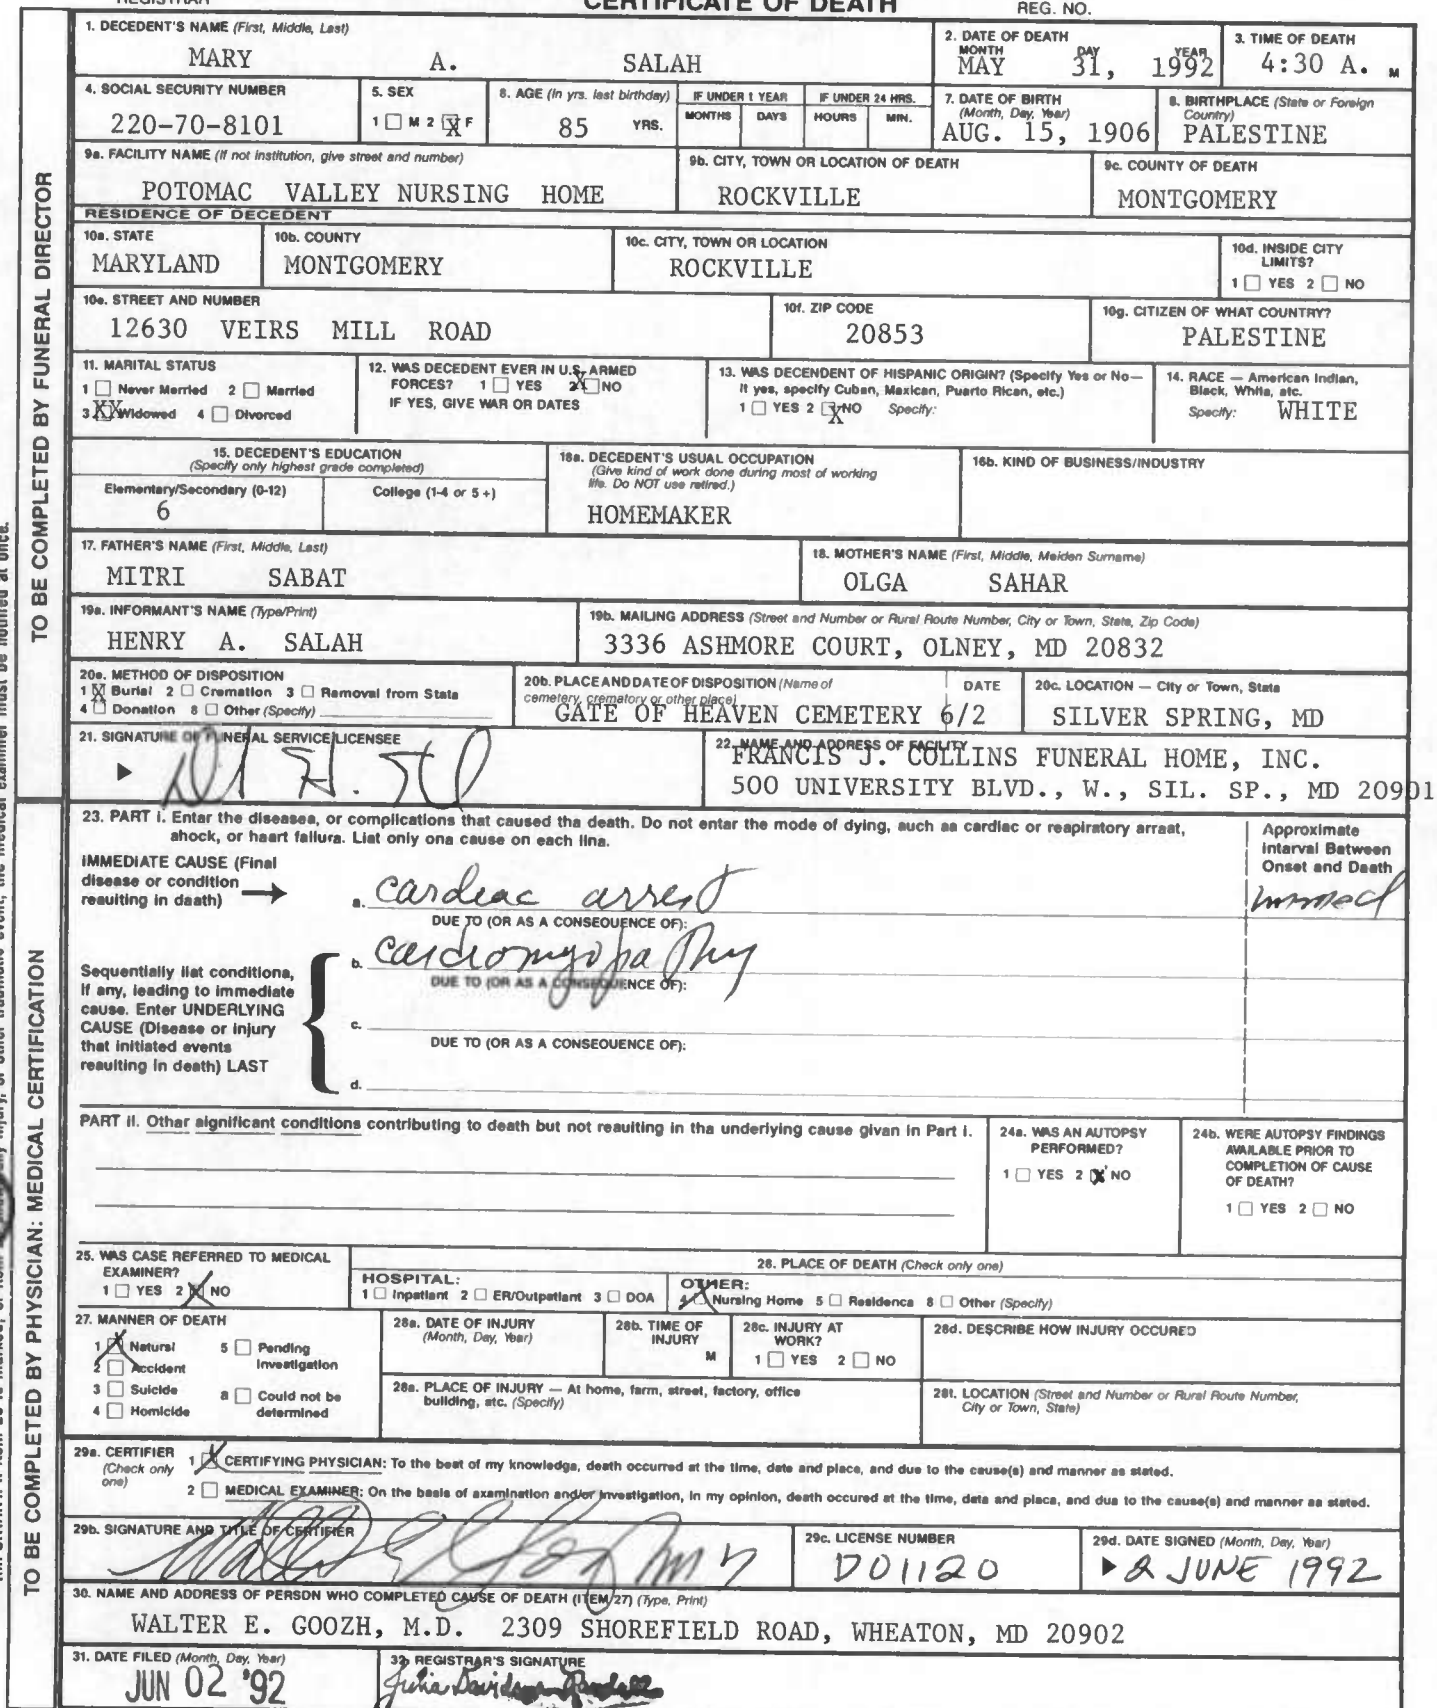 REGISTRAR
CERTIFICATE OF DEATH
REG. NO.
1. DECEDENT'S NAME (First, Middle, Last)
MARY A. SALAH
2. DATE OF DEATH
MONTH DAY YEAR
MAY 31, 1992
3. TIME OF DEATH
4:30 A. M
4. SOCIAL SECURITY NUMBER
220-70-8101
5. SEX
1 M 2 X F
6. AGE (In yrs. last birthday)
85 YRS.
IF UNDER 1 YEAR
MONTHS DAYS
IF UNDER 24 HRS.
HOURS MIN.
7. DATE OF BIRTH
(Month, Day, Year)
AUG. 15, 1906
8. BIRTHPLACE (State or Foreign
Country)
PALESTINE
9a. FACILITY NAME (If not institution, give street and number)
POTOMAC VALLEY NURSING HOME
9b. CITY, TOWN OR LOCATION OF DEATH
ROCKVILLE
9c. COUNTY OF DEATH
MONTGOMERY
RESIDENCE OF DECEDENT
10a. STATE
MARYLAND
10b. COUNTY
MONTGOMERY
10c. CITY, TOWN OR LOCATION
ROCKVILLE
10d. INSIDE CITY
LIMITS?
1 YES 2 NO
10e. STREET AND NUMBER
12630 VEIRS MILL ROAD
10f. ZIP CODE
20853
10g. CITIZEN OF WHAT COUNTRY?
PALESTINE
11. MARITAL STATUS
1 Never Married 2 Married
3 XX Widowed 4 Divorced
12. WAS DECEDENT EVER IN U.S. ARMED
FORCES? 1 YES 2 X NO
IF YES, GIVE WAR OR DATES
13. WAS DECENDENT OF HISPANIC ORIGIN? (Specify Yes or No—
It yes, specify Cuban, Maxican, Puerto Rican, etc.)
1 YES 2 X NO Specify:
14. RACE — American Indian,
Black, White, etc.
Specify: WHITE
15. DECEDENT'S EDUCATION
(Specify only highest grade completed)
Elementary/Secondary (0-12)
6
College (1-4 or 5 +)
16a. DECEDENT'S USUAL OCCUPATION
(Give kind of work done during most of working
life. Do NOT use retired.)
HOMEMAKER
16b. KIND OF BUSINESS/INDUSTRY
17. FATHER'S NAME (First, Middle, Last)
MITRI SABAT
18. MOTHER'S NAME (First, Middle, Maiden Surname)
OLGA SAHAR
19a. INFORMANT'S NAME (Type/Print)
HENRY A. SALAH
19b. MAILING ADDRESS (Street and Number or Rural Route Number, City or Town, State, Zip Code)
3336 ASHMORE COURT, OLNEY, MD 20832
20a. METHOD OF DISPOSITION
1 X Burial 2 Cremation 3 Removal from State
4 Donation 8 Other (Specify)
20b. PLACE AND DATE OF DISPOSITION (Name of
cemetery, crematory or other place)
DATE
GATE OF HEAVEN CEMETERY 6/2
20c. LOCATION — City or Town, State
SILVER SPRING, MD
21. SIGNATURE OF FUNERAL SERVICE LICENSEE
22. NAME AND ADDRESS OF FACILITY
FRANCIS J. COLLINS FUNERAL HOME, INC.
500 UNIVERSITY BLVD., W., SIL. SP., MD 20901
TO BE COMPLETED BY FUNERAL DIRECTOR
23. PART I. Enter the diseases, or complications that caused the death. Do not enter the mode of dying, such as cardiac or respiratory arrest,
shock, or heart failure. List only one cause on each line.
Approximate
Interval Between
Onset and Death
IMMEDIATE CAUSE (Final
disease or condition
resulting in death)
a. cardiac arrest
immed
DUE TO (OR AS A CONSEQUENCE OF):
b. cardiomyopathy
DUE TO (OR AS A CONSEQUENCE OF):
c.
DUE TO (OR AS A CONSEQUENCE OF):
d.
Sequentially list conditions,
If any, leading to immediate
cause. Enter UNDERLYING
CAUSE (Disease or injury
that initiated events
resulting in death) LAST
PART II. Other significant conditions contributing to death but not resulting in the underlying cause given in Part I.
24a. WAS AN AUTOPSY
PERFORMED?
1 YES 2 X NO
24b. WERE AUTOPSY FINDINGS
AVAILABLE PRIOR TO
COMPLETION OF CAUSE
OF DEATH?
1 YES 2 NO
25. WAS CASE REFERRED TO MEDICAL
EXAMINER?
1 YES 2 X NO
26. PLACE OF DEATH (Check only one)
HOSPITAL:
1 Inpatient 2 ER/Outpatient 3 DOA
OTHER:
4 X Nursing Home 5 Residence 8 Other (Specify)
27. MANNER OF DEATH
1 X Natural 5 Pending
Investigation
2 Accident
3 Suicide 8 Could not be
determined
4 Homicide
28a. DATE OF INJURY
(Month, Day, Year)
28b. TIME OF
INJURY
M
28c. INJURY AT
WORK?
1 YES 2 NO
28d. DESCRIBE HOW INJURY OCCURED
28e. PLACE OF INJURY — At home, farm, street, factory, office
building, etc. (Specify)
28f. LOCATION (Street and Number or Rural Route Number,
City or Town, State)
29a. CERTIFIER
(Check only
one)
1 X CERTIFYING PHYSICIAN: To the best of my knowledge, death occurred at the time, date and place, and due to the cause(s) and manner as stated.
2 MEDICAL EXAMINER: On the basis of examination and/or investigation, in my opinion, death occured at the time, data and place, and due to the cause(s) and manner as stated.
29b. SIGNATURE AND TITLE OF CERTIFIER
Walter E Goozh MD
29c. LICENSE NUMBER
D01120
29d. DATE SIGNED (Month, Day, Year)
2 JUNE 1992
30. NAME AND ADDRESS OF PERSON WHO COMPLETED CAUSE OF DEATH (ITEM 27) (Type, Print)
WALTER E. GOOZH, M.D. 2309 SHOREFIELD ROAD, WHEATON, MD 20902
31. DATE FILED (Month, Day, Year)
JUN 02 '92
32. REGISTRAR'S SIGNATURE
Julia Davidson Randall
TO BE COMPLETED BY PHYSICIAN: MEDICAL CERTIFICATION